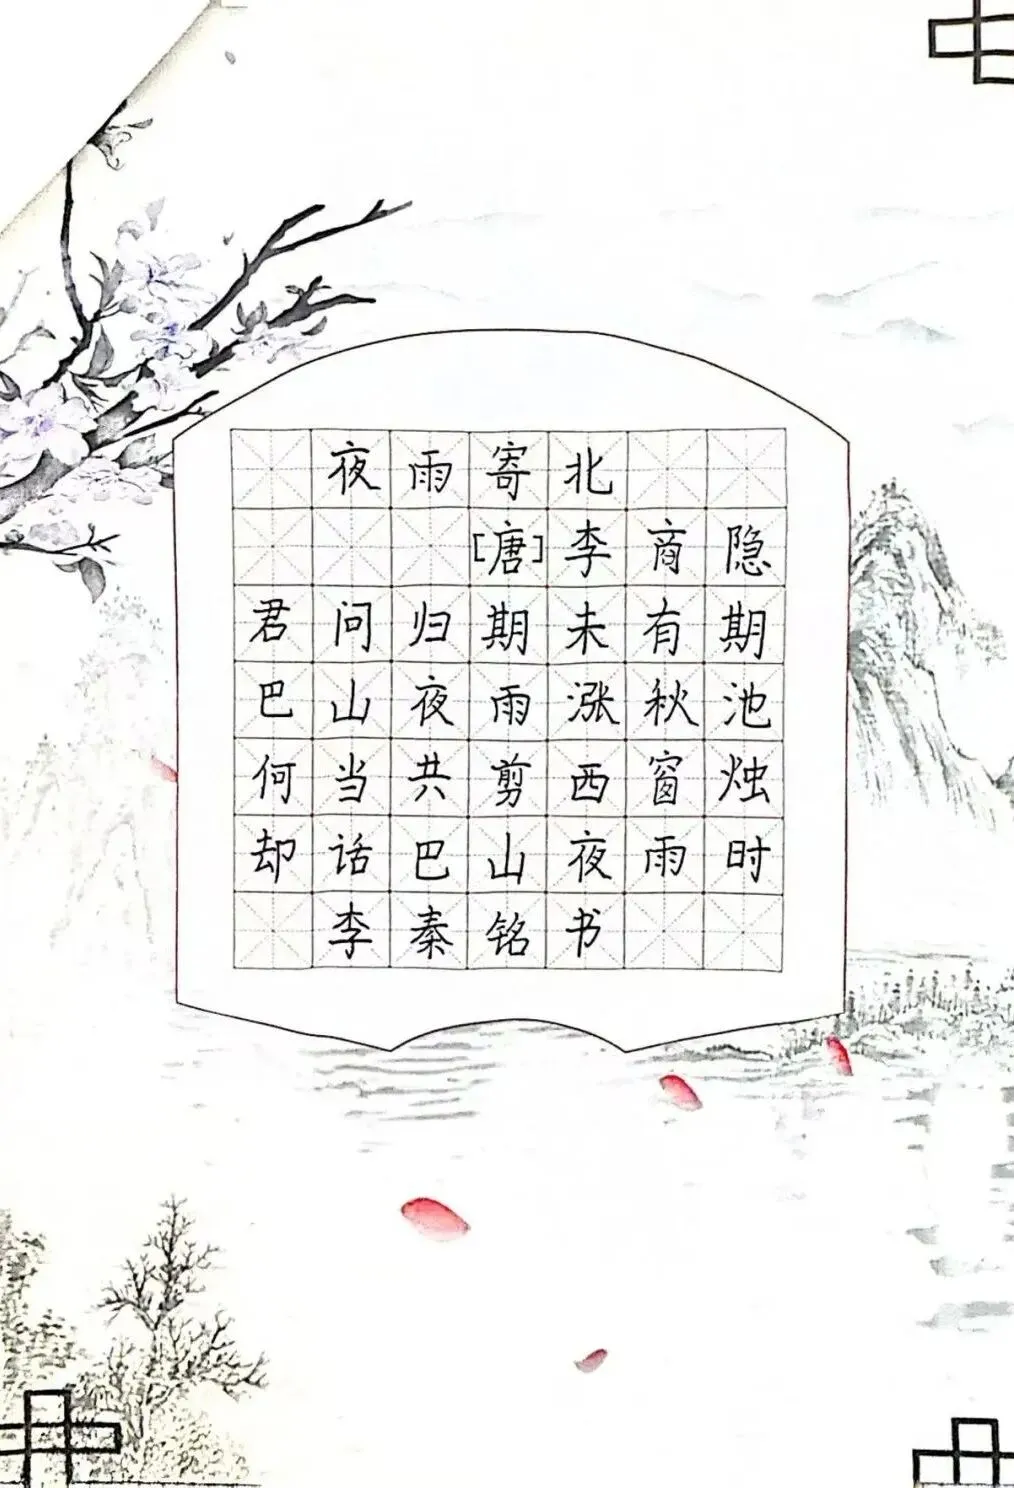 夜雨寄北
[唐]李商隐
君问归期未有期
巴山夜雨涨秋池
何当共剪西窗烛
却话巴山夜雨时
李秦铭书